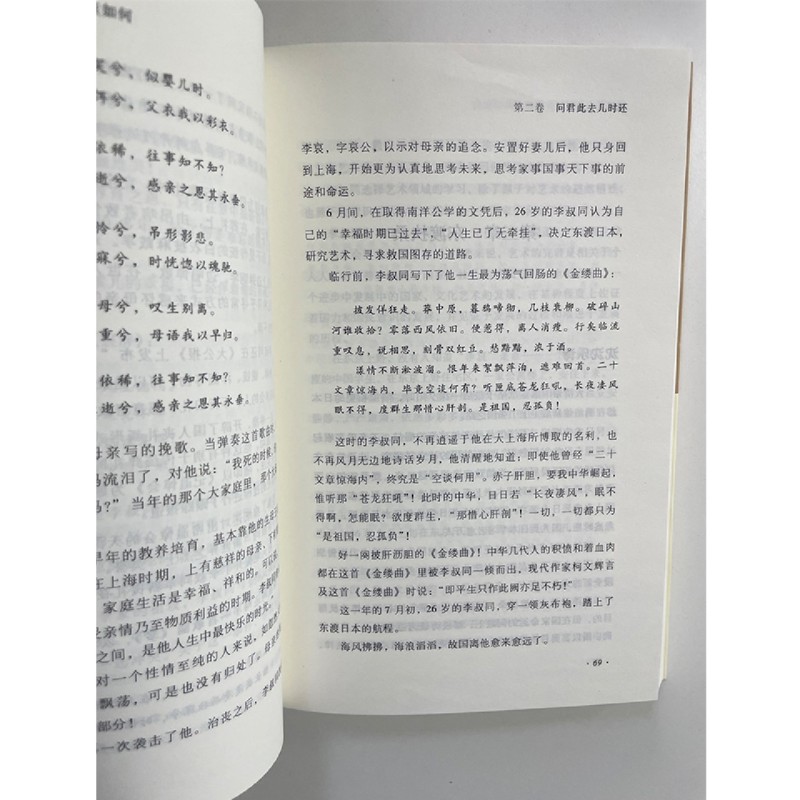 如何
兮，似婴儿时。
兮，父衣我以彩衣。
依稀，往事知不知？
逝兮，感亲之恩其永垂。
兮，吊形影悲。
兮，时恍惚以魂驰。
母兮，叹生别离。
重兮，母语我以早归。
依稀，往事知不知？
逝兮，感亲之恩其永垂。
母亲写的挽歌。当弹奏这首歌曲
流泪了，对他说：“我死的时候，
吗？”当年的那个大家庭里，那个
早年的教养培育，基本靠他的生
在上海时期，上有慈祥的母亲、下
家庭生活是幸福、祥和的，可
亲情乃至物质利益的时期。李叔同
之间，是他人生中最快乐的时光。”
对一个性情至纯的人来说，
飘荡，可是也没有归处了。
部分！
一次袭击了他。治丧之后，李叔
第二卷 问君此去几时还
李哀，字哀公，以示对母亲的追念。安置好妻儿后，他只身回
到上海，开始更为认真地思考未来，思考家事国事天下事的前
途和命运。
6月间，在取得南洋公学的文凭后，26岁的李叔同认为自
己的“幸福时期已过去”，“人生已了无牵挂”，决定东渡日本，
研究艺术，寻求救国图存的道路。
临行前，李叔同写下了他一生最为荡气回肠的《金缕曲》：
披发佯狂走。莽中原，暮鸦啼彻，几枝衰柳。破碎山
河谁收拾？零落西风依旧。便惹得，离人消瘦。行矣临流
重叹息，说相思，刻骨双红豆。愁黯黯，浓于酒。
漾情不断淞波溜。恨年来絮飘萍泊，遮难回首。二十
文章惊海内，毕竟空谈何有？听匣底苍龙狂吼，长夜凄风
眠不得，度群生那惜心肝剖。是祖国，忍孤负！
这时的李叔同，不再逍遥于他在大上海所博取的名利，也
不再风月无边地诗话岁月，他清醒地知道：即使他曾经“二十
文章惊海内”，终究是“空谈何用”。赤子肝胆，要我中华崛起，
惟听那“苍龙狂吼”！此时的中华，日日若“长夜凄风”，眠不
得啊，怎能眠？欲度群生，“那惜心肝剖”！一切，一切都只为
“是祖国，忍孤负”！
好一阕披肝沥胆的《金缕曲》！中华几代人的积愤和着血肉
都在这首《金缕曲》里被李叔同一倾而出，现代作家柯文辉言
及这首《金缕曲》时说：“即平生只作此阕亦足不朽！”
这一年的7月初，26岁的李叔同，穿一领灰布袍，踏上了
东渡日本的航程。
海风拂拂，海浪滔滔，故国离他愈来愈远了。
· 69 ·